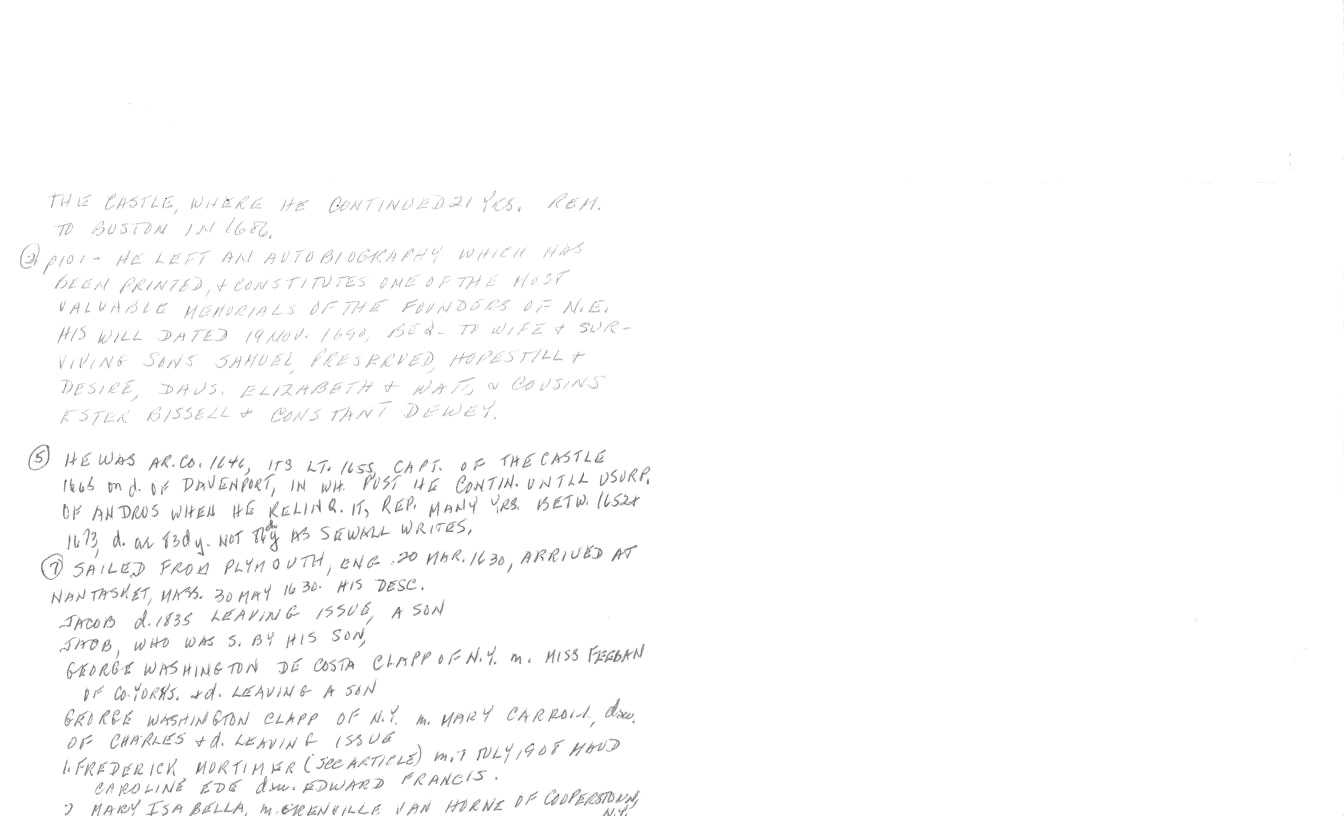 THE CASTLE, WHERE HE CONTINUED 21 YRS. REM.
TO BOSTON IN 1686.
③ p101- HE LEFT AN AUTOBIOGRAPHY WHICH HAS
BEEN PRINTED, & CONSTITUTES ONE OF THE MOST
VALUABLE MEMORIALS OF THE FOUNDERS OF N.E.
HIS WILL DATED 19 NOV. 1690, BEQ- TO WIFE & SUR-
VIVING SONS SAMUEL, PRESERVED, HOPESTILL &
DESIRE, DAUS. ELIZABETH & WAIT, & COUSINS
ESTER BISSELL & CONSTANT DEWEY.
⑤ HE WAS AR. CO. 1646, ITS LT. 1655, CAPT. OF THE CASTLE
1665 on d. OF DAVENPORT, IN WH. POST HE CONTIN. UNTILL USURP.
OF ANDROS WHEN HE RELINQ. IT, REP. MANY YRS. BETW. 1652 &
1673, d. in 83d y. NOT AS SEWALL WRITES.
⑦ SAILED FROM PLYMOUTH, ENG. 20 MAR. 1630, ARRIVED AT
NANTASKET, MASS. 30 MAY 1630. HIS DESC.
JACOB d. 1835 LEAVING ISSUE, A SON
JACOB, WHO WAS S. BY HIS SON,
GEORGE WASHINGTON DE COSTA CLAPP OF N.Y. m. MISS FEEBAN
OF CO. YORKS. & d. LEAVING A SON
GEORGE WASHINGTON CLAPP OF N.Y. m. MARY CARROLL, dau.
OF CHARLES & d. LEAVING ISSUE
1. FREDERICK MORTIMER (SEE ARTICLE) m. 7 JULY, 1908 MAUD
CAROLINE EDE dau. EDWARD FRANCIS.
2 MARY ISABELLA, m. GRENVILLE VAN HORNE OF COOPERSTOWN,
N.Y.